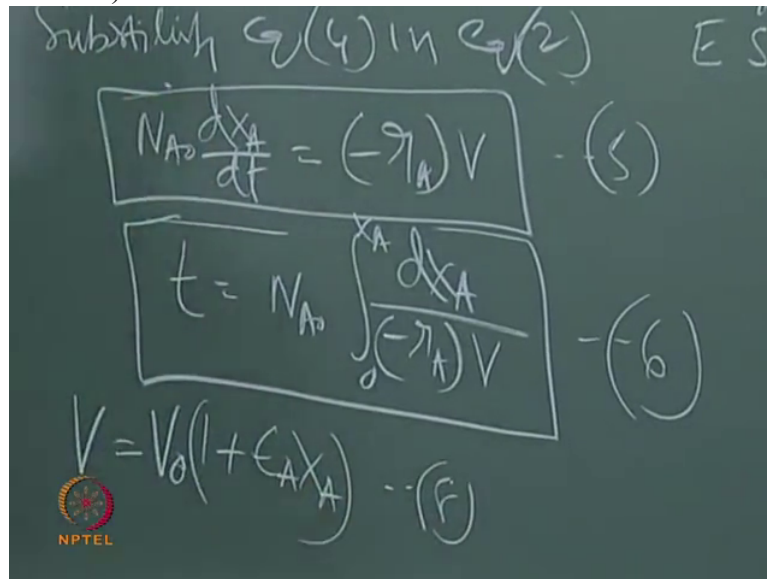 Substituting Eq(4) in Eq(2) E S
N_{A0} dX_A/dt = (-r_A) V --(5)
t = N_{A0} ∫_0^{X_A} dX_A/((-r_A) V) --(6)
V = V_0(1 + ε_A X_A) --(F)
NPTEL